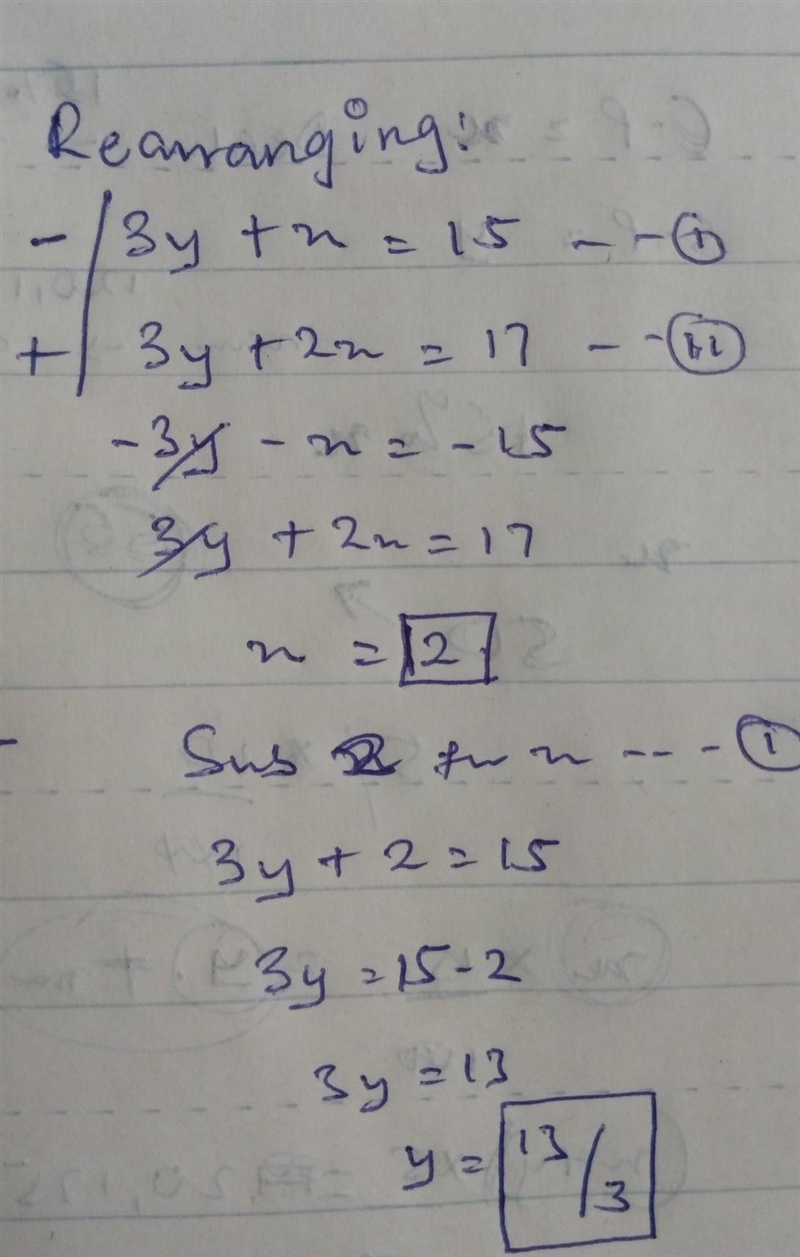 Rearranging:
- | 3y + x = 15 - - (i)
+ | 3y + 2x = 17 - - (ii)
-3y - x = -15
3y + 2x = 17
x = 2
Sub 2 for x --- (i)
3y + 2 = 15
3y = 15 - 2
3y = 13
y = 13/3